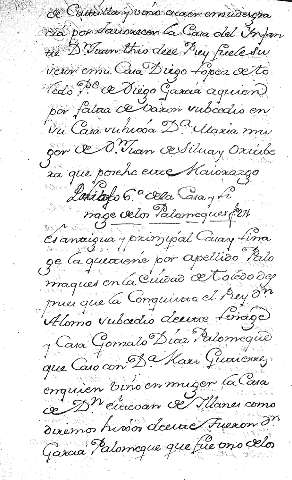 de Castilla y vino a caer en su desgra
cia por favorecer la Casa del Infan
te Dn Juan thio deel Rey fuele su
cesor en su Casa Diego Lopez de to
ledo Po de Diego Garcia a quien
por falta de varon subcedio en
su Casa su hixa Da Maria mu
ger de Dn Juan de Silva y Ribibe
ra que posehe este Maiorazgo
Parrafo 6o de la Casa y Li
nage de los Palomeques
Es antigua y principal Casa y lina
ge la que tiene por apellido Palo
meques en la Ciudad de toledo des
pues que la Conquisto el Rey Dn
Alonso subcedio de este linage
y Casa Gonzalo Diaz Palomeque
que Caso con Da Mari Gutierrez
en quien vino en muger la Casa
de Dn estevan de Illanes como
diremos hixos de estos fueron Dn
Garcia Palomeque que fue uno de los